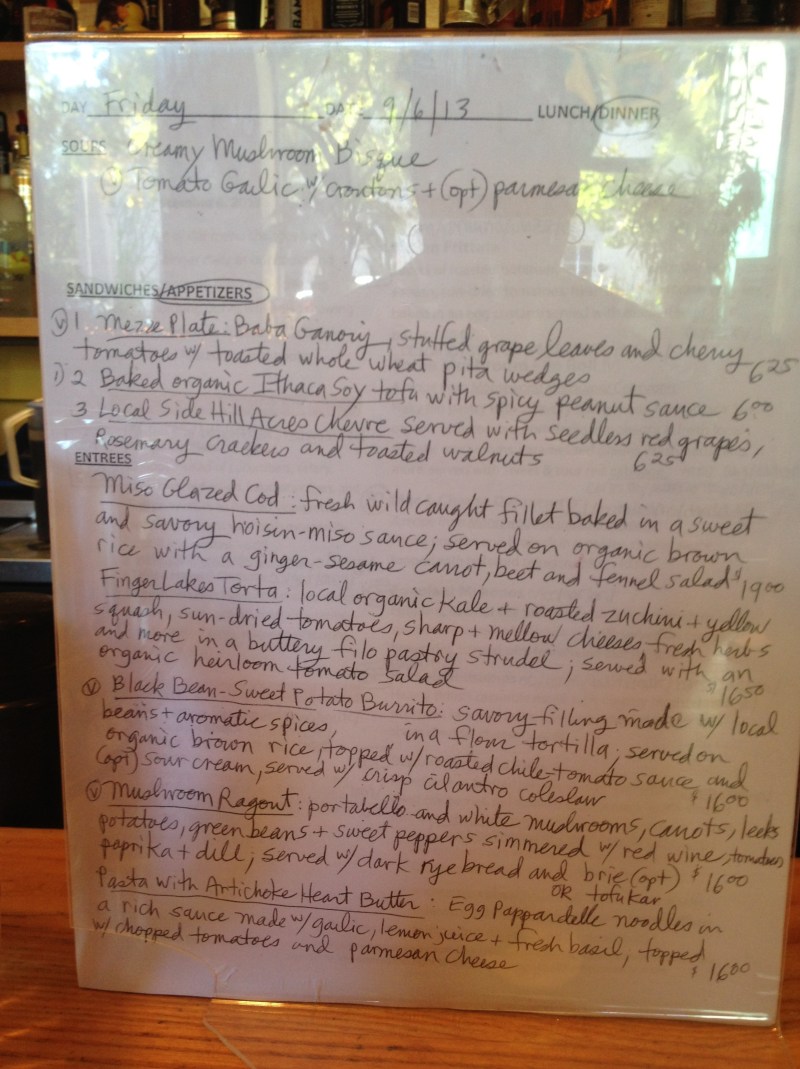 DAY Friday DATE 9/6/13 LUNCH/DINNER
SOUPS Creamy Mushroom Bisque
Ⓥ Tomato Garlic w/ croutons + (opt) parmesan cheese
SANDWICHES/APPETIZERS
Ⓥ 1. Mezze Plate: Baba Ganouj, stuffed grape leaves and cherry
tomatoes w/ toasted whole wheat pita wedges 6 25
2 Baked organic Ithaca Soy tofu with spicy peanut sauce 6 00
3 Local Side Hill Acres Chevre served with seedless red grapes,
Rosemary Crackers and toasted walnuts 6 25
ENTREES
Miso Glazed Cod : fresh wild caught fillet baked in a sweet
and savory hoisin-miso sauce; served on organic brown
rice with a ginger-sesame carrot, beet and fennel salad $19 00
Finger Lakes Torta : local organic kale + roasted zuchini + yellow
squash, sun-dried tomatoes, sharp + mellow cheeses, fresh herbs
and more in a buttery filo pastry strudel ; served with an
organic heirloom tomato salad $16 50
Ⓥ Black Bean-Sweet Potato Burrito: savory filling made w/ local
beans + aromatic spices, in a flour tortilla; served on
organic brown rice, topped w/ roasted chile-tomato sauce and
(opt) sour cream, served w/ crisp cilantro coleslaw $16 00
Ⓥ Mushroom Ragout : portabello and white mushrooms, carrots, leeks
potatoes, green beans + sweet peppers simmered w/ red wine, tomatoes
paprika + dill ; served w/ dark rye bread and brie (opt) $16 00
OR tofu kan
Pasta with Artichoke Heart Butter : Egg Pappardelle noodles in
a rich sauce made w/ garlic, lemon juice + fresh basil, topped
w/ chopped tomatoes and parmesan cheese $16 00